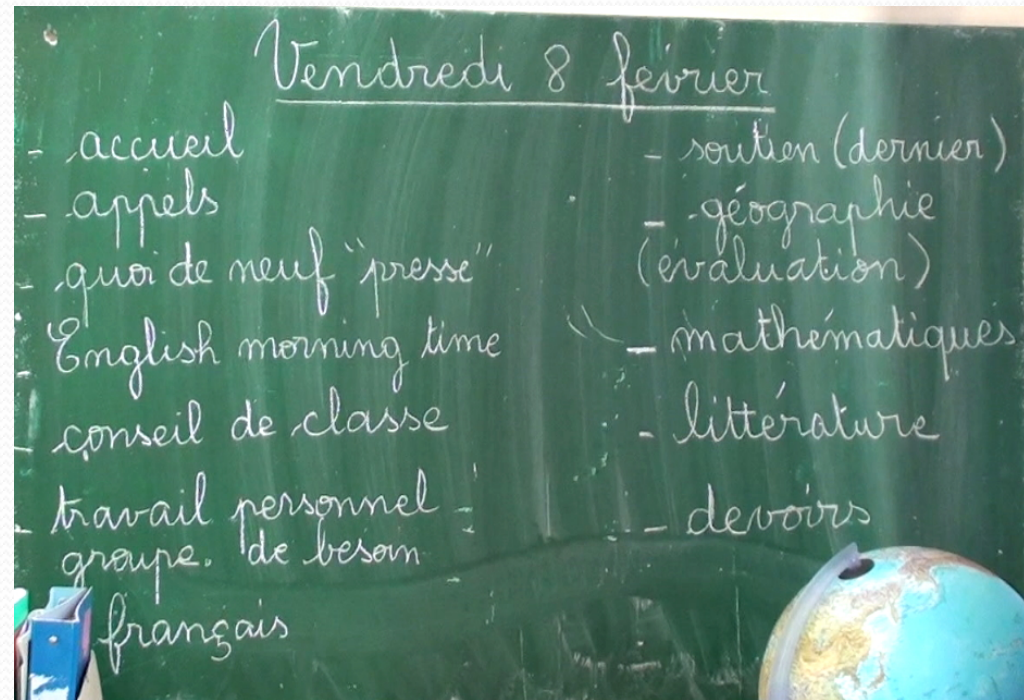 Vendredi 8 février
- accueil
- appels
- quoi de neuf "presse"
- English morning time
- conseil de classe
- travail personnel -
groupe. de besoin
français
- soutien (dernier)
- géographie
(évaluation)
- mathématiques
- littérature
- devoirs